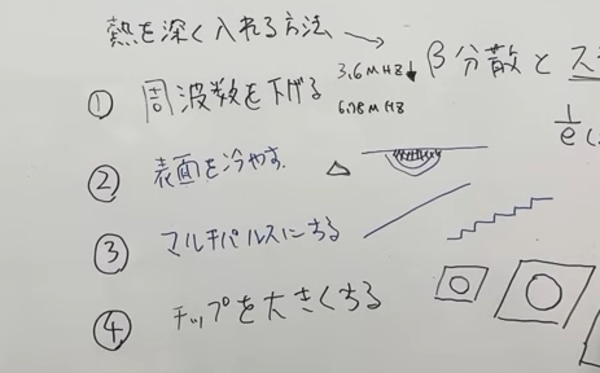 熱を深く入れる方法 → β分散と
① 周波数を下げる 3.6MHz↓
6.78MHz
1/e
② 表面を冷やす.
③ マルチパルスにする
④ チップを大きくする